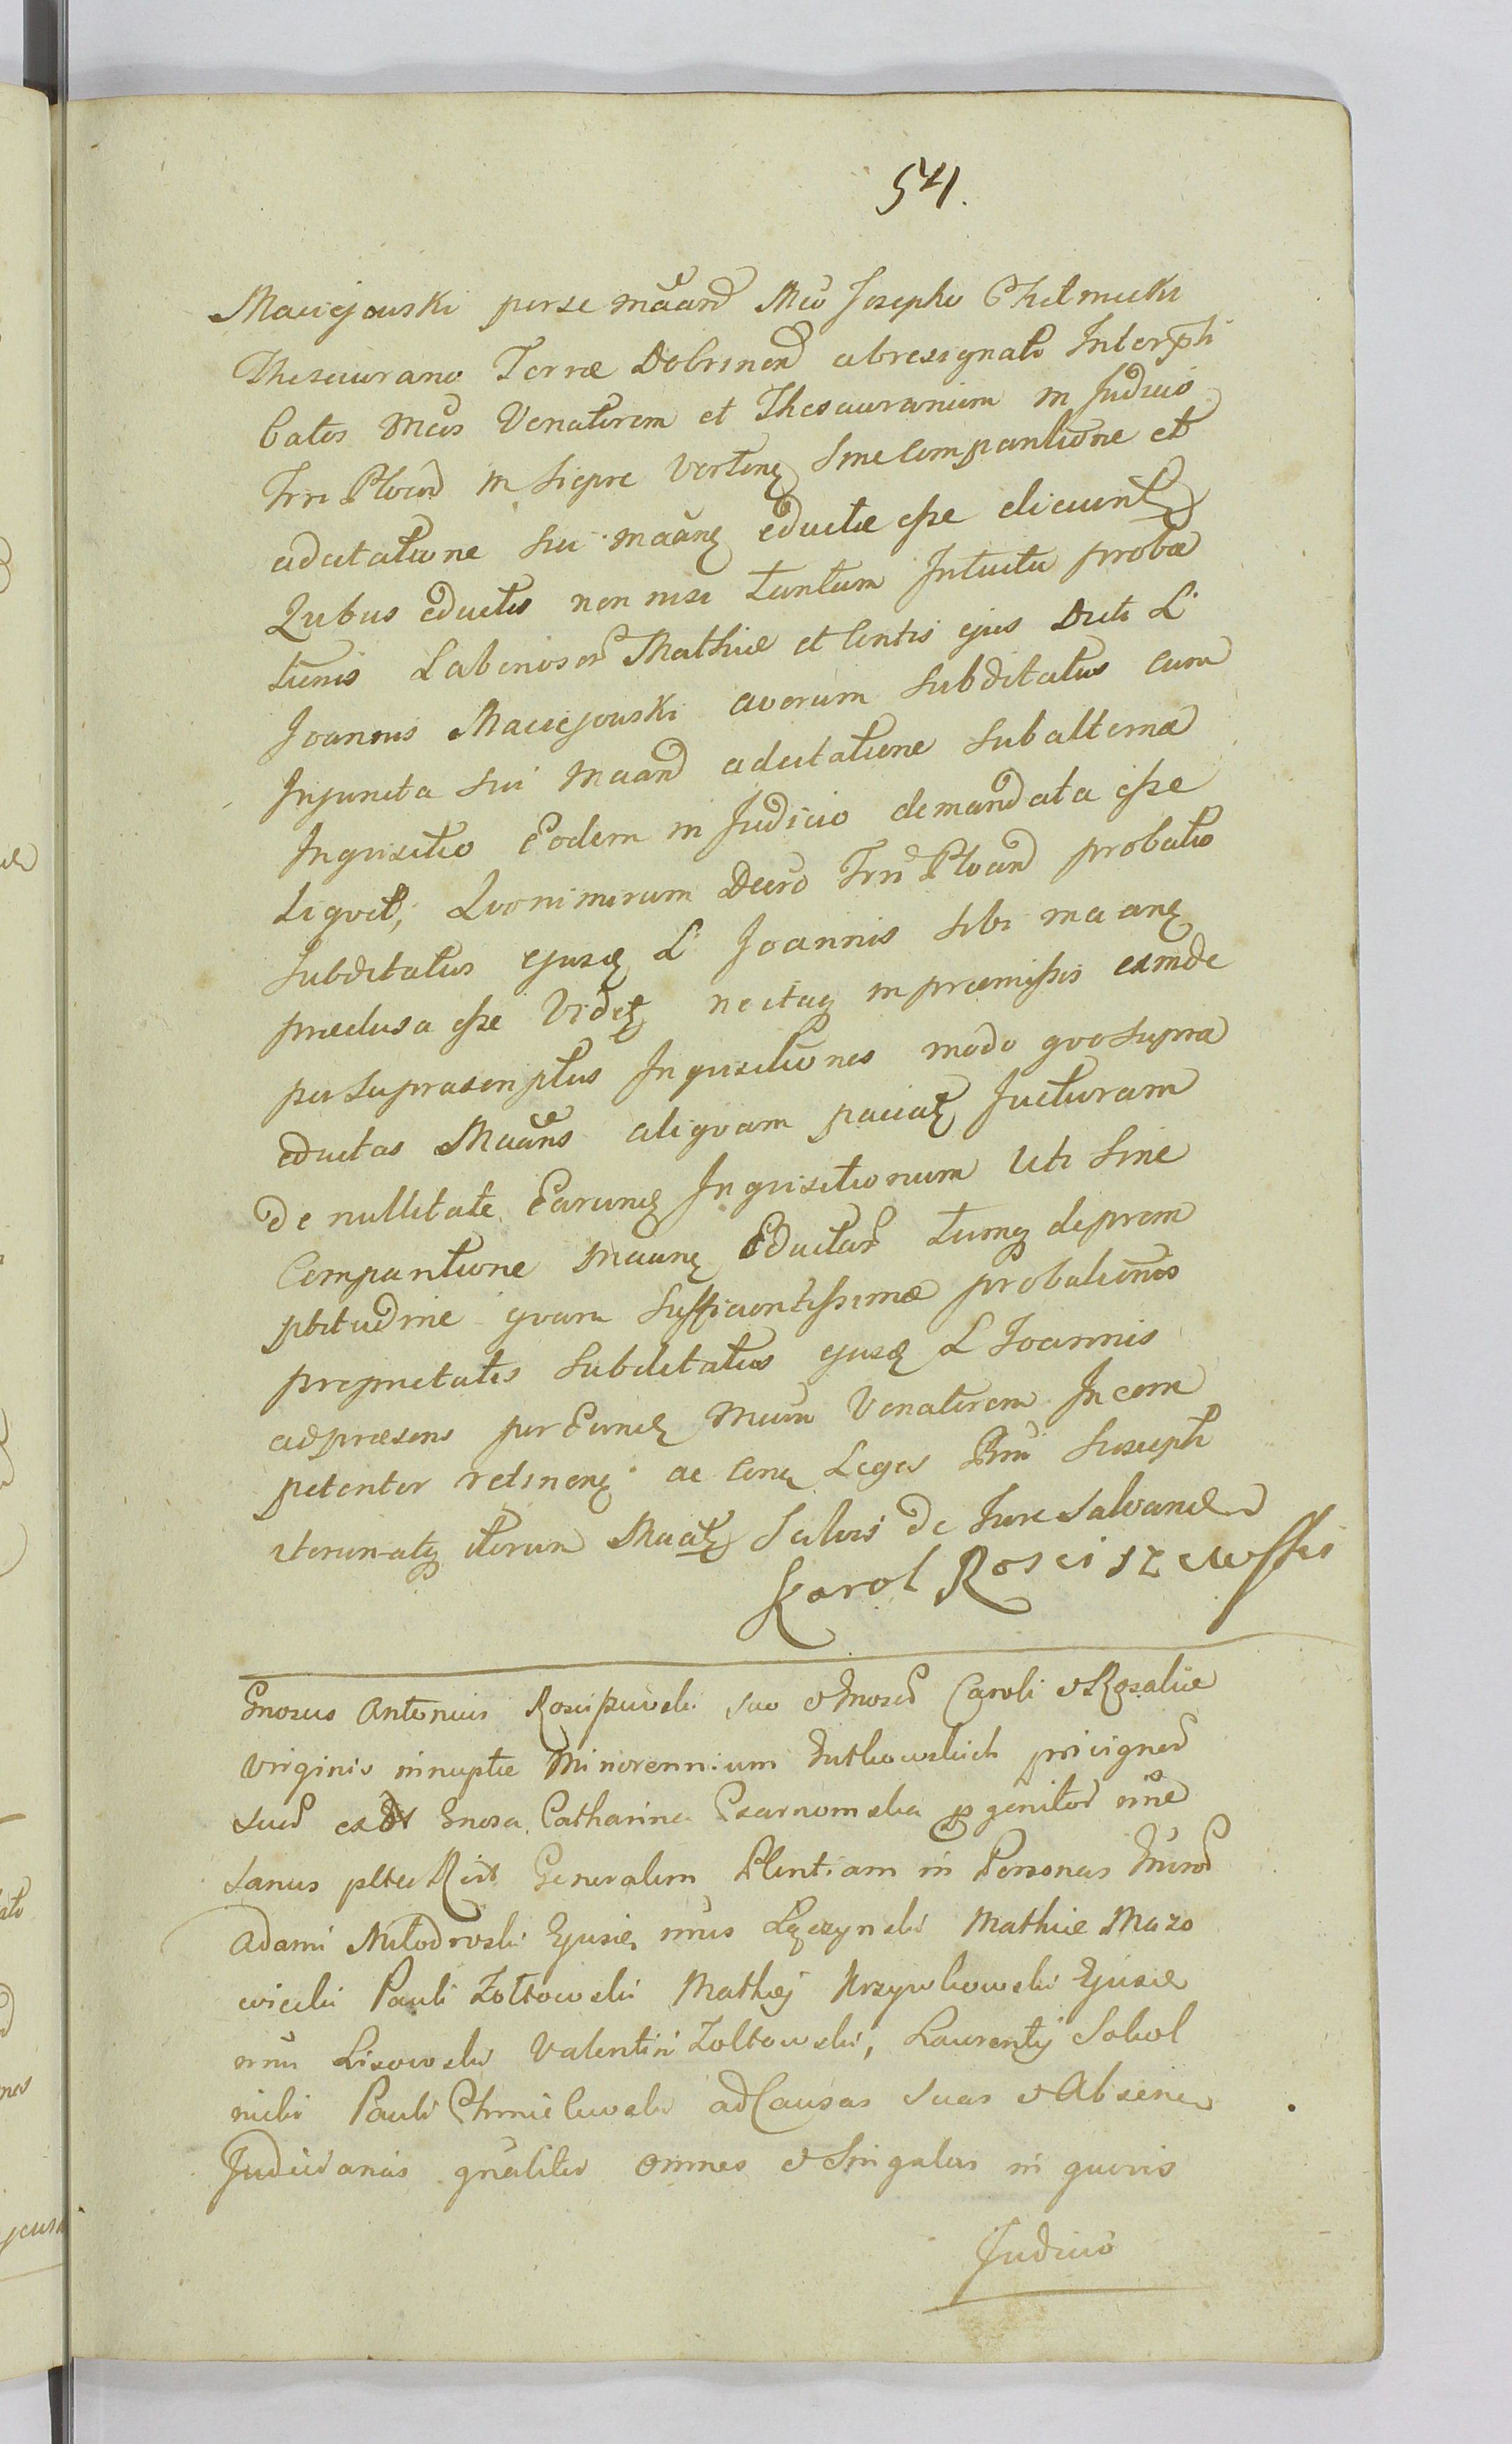 541.
Maciejowski per se mãand Mco Josepho Chełmicki
Thesaurario Terræ Dobrinen abresignato Interph
batos Mcos Venatorem et Thesaurarium in Judicio
Trri Plocen in Sieprc Verten Sine Comparitione et
adcitatione sui maanę eductæ esse dicunt
Quibus eductis non nisi tantum Intuitu proba
tionis Laboriosor Mathiæ et Centis ejus Dicti L:
Joannis Maciejowski avorum Subditatus cum
Injuncta sui maand adcitatione Subalterna
Inquisitio Eodem in Judicio demandata esse
Liqvet, Qvonimirum Decro Trri Plocen probatio
Subditatus ejusd L: Joannis sibi maanę
præclusa esse Videt ne itaq in præmissis eamde
per suprascriptas Inqvisitiones modo qvo supra
eductas Maans aliqvam paciat Jacturam
de nullitate Earund Inqvisitionum Uti Sine
Comparitione maanę Eductar tumq de prom
ptitudine qvam Sufficientissimæ probationis
proprietatis Subditatus ejusd L Joannis
ad præsens per Eund Mcum Venatorem Incom
petenter retinen ac Con Leges Rni Suscept
iterumatq iterum Maat Salvis de Jure Salvand
Karol Rosciszewski
Gnosus Antonius Rosciszewski suo et Gnosor Caroli et Rosaliæ
Virginis innuptæ Minorennium Rutkowskich privignor
suor ex olt Gnosa Catharina Czarnomska p genitor nine
Sanus pltee Rert Generalem Plentiam in Personas Gnosor
Adami Młodroski Ejusd nnis Łęczynski Mathiæ Mazo
wiecki Pauli Zołtowski Mathej Krzywkowski Ejusd
nnis Lisowski Valentini Zołtowski, Laurentij Sokol
nicki Pauli Chmielewski ad Causas suas et Absen
Judiciarias gnaliter omnes et Singulas in quovis
Judicio